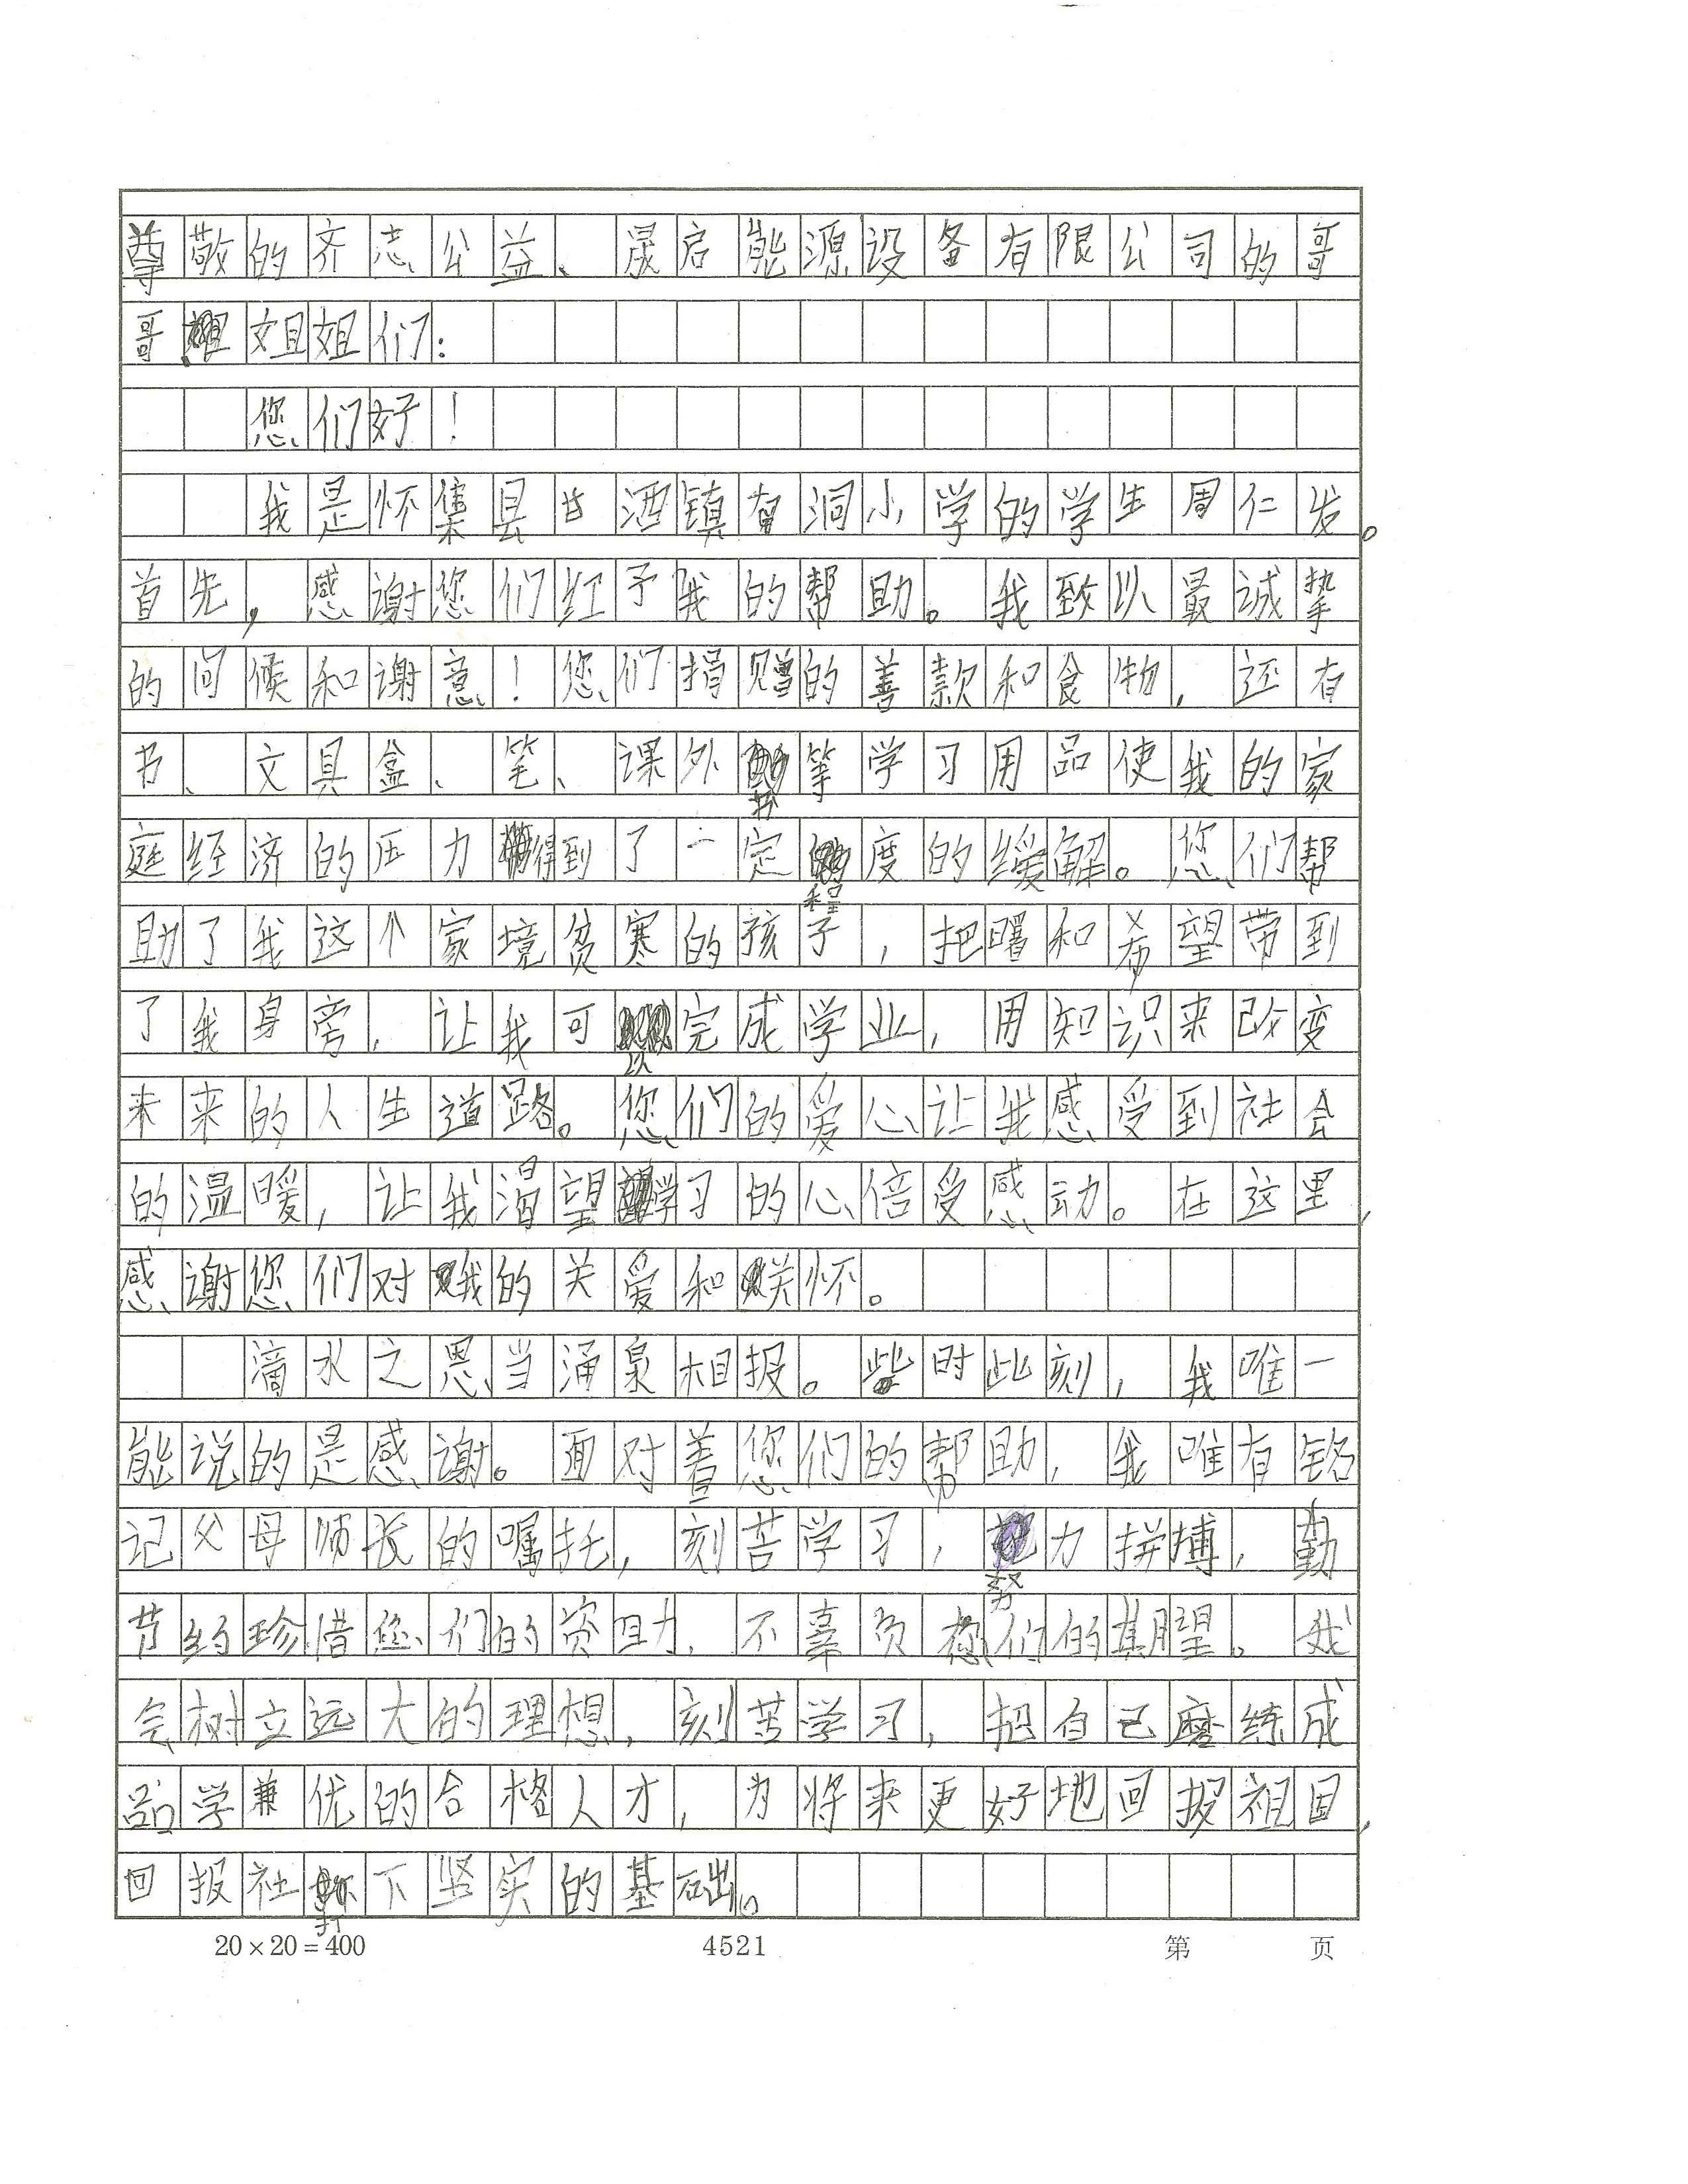 尊敬的齐志公益、晟启能源设备有限公司的哥
哥姐姐们:
您们好!
我是怀集县甘洒镇有洞小学的学生周仁发。
首先,感谢您们红予我的帮助。我致以最诚挚
的问候和谢意!您们捐赠的善款和食物,还有
书、文具盒、笔、课外书等学习用品使我的家
庭经济的压力得到了一定程度的缓解。您们帮
助了我这个家境贫寒的孩子,把曙和希望带到
了我身旁,让我可以完成学业,用知识来改变
未来的人生道路。您们的爱心让我感受到社会
的温暖,让我渴望学习的心倍受感动。在这里,
感谢您们对我的关爱和关怀。
滴水之恩当涌泉相报。此时此刻,我唯一
能说的是感谢。面对着您们的帮助,我唯有铭
记父母师长的嘱托,刻苦学习,努力拼搏,勤
节约珍惜您们的资助,不辜负您们的期望。我
会树立远大的理想,刻苦学习,把自己磨练成
品学兼优的合格人才,为将来更好地回报祖国,
回报社打下坚实的基础。
20×20=400 4521 第 页